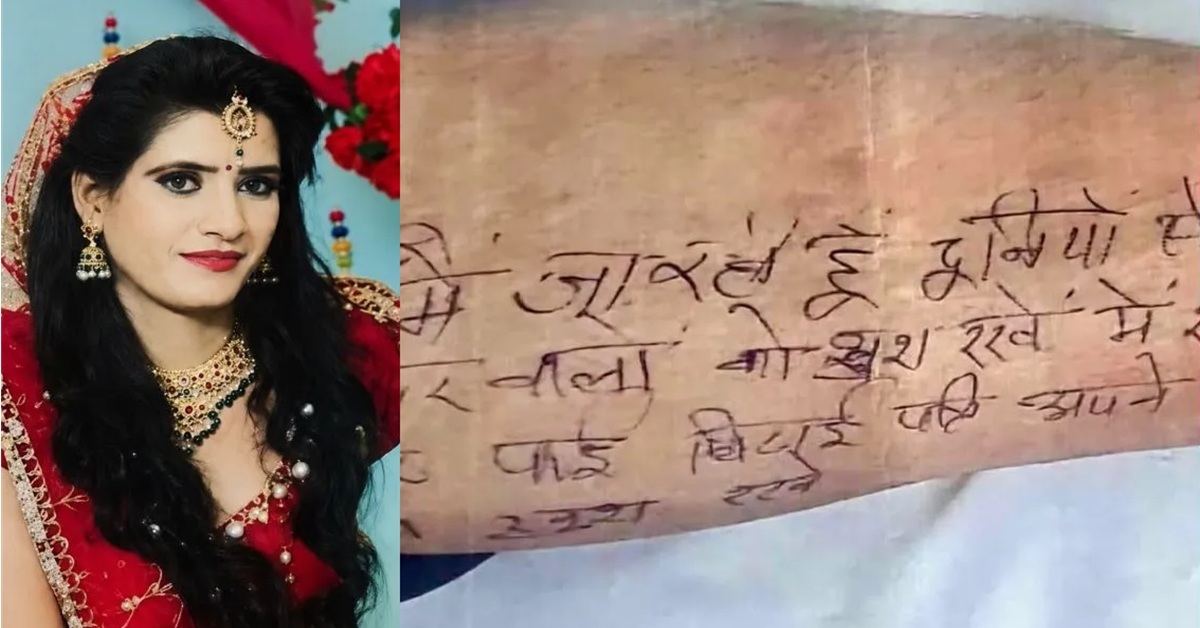 मैं जा रही हूँ दुनियाँ से
र वालों को खुश रखें में
पाई बिटाई पति अपने
खुश रखे